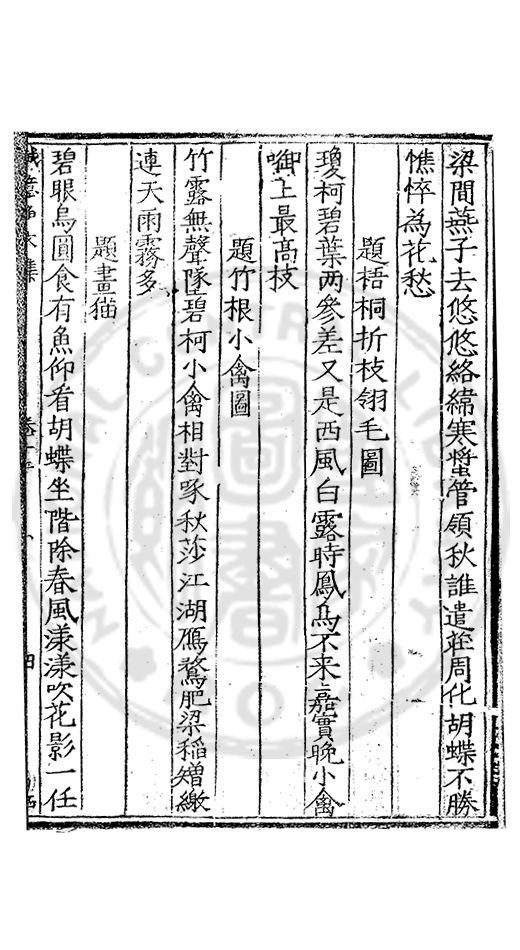 梁間燕子去悠悠絡緯寒螿管領秋誰遣莊周化胡蝶不勝
憔悴為花愁
題梧桐折枝翎毛圖
瓊柯碧葉两參差又是西風白露時鳳鳥不来嘉實晚小禽
啣上最高枝
題竹根小禽圖
竹露無聲墜碧柯小禽相對啄秋莎江湖鴈鶩肥梁稻矰繳
連天雨霧多
題畫猫
碧眼烏圓食有魚仰看胡蝶坐階除春風漾漾吹花影一任